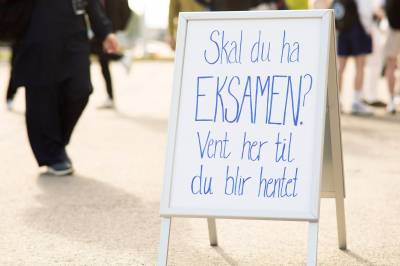 Skal du ha
EKSAMEN?
Vent her til
du blir hentet